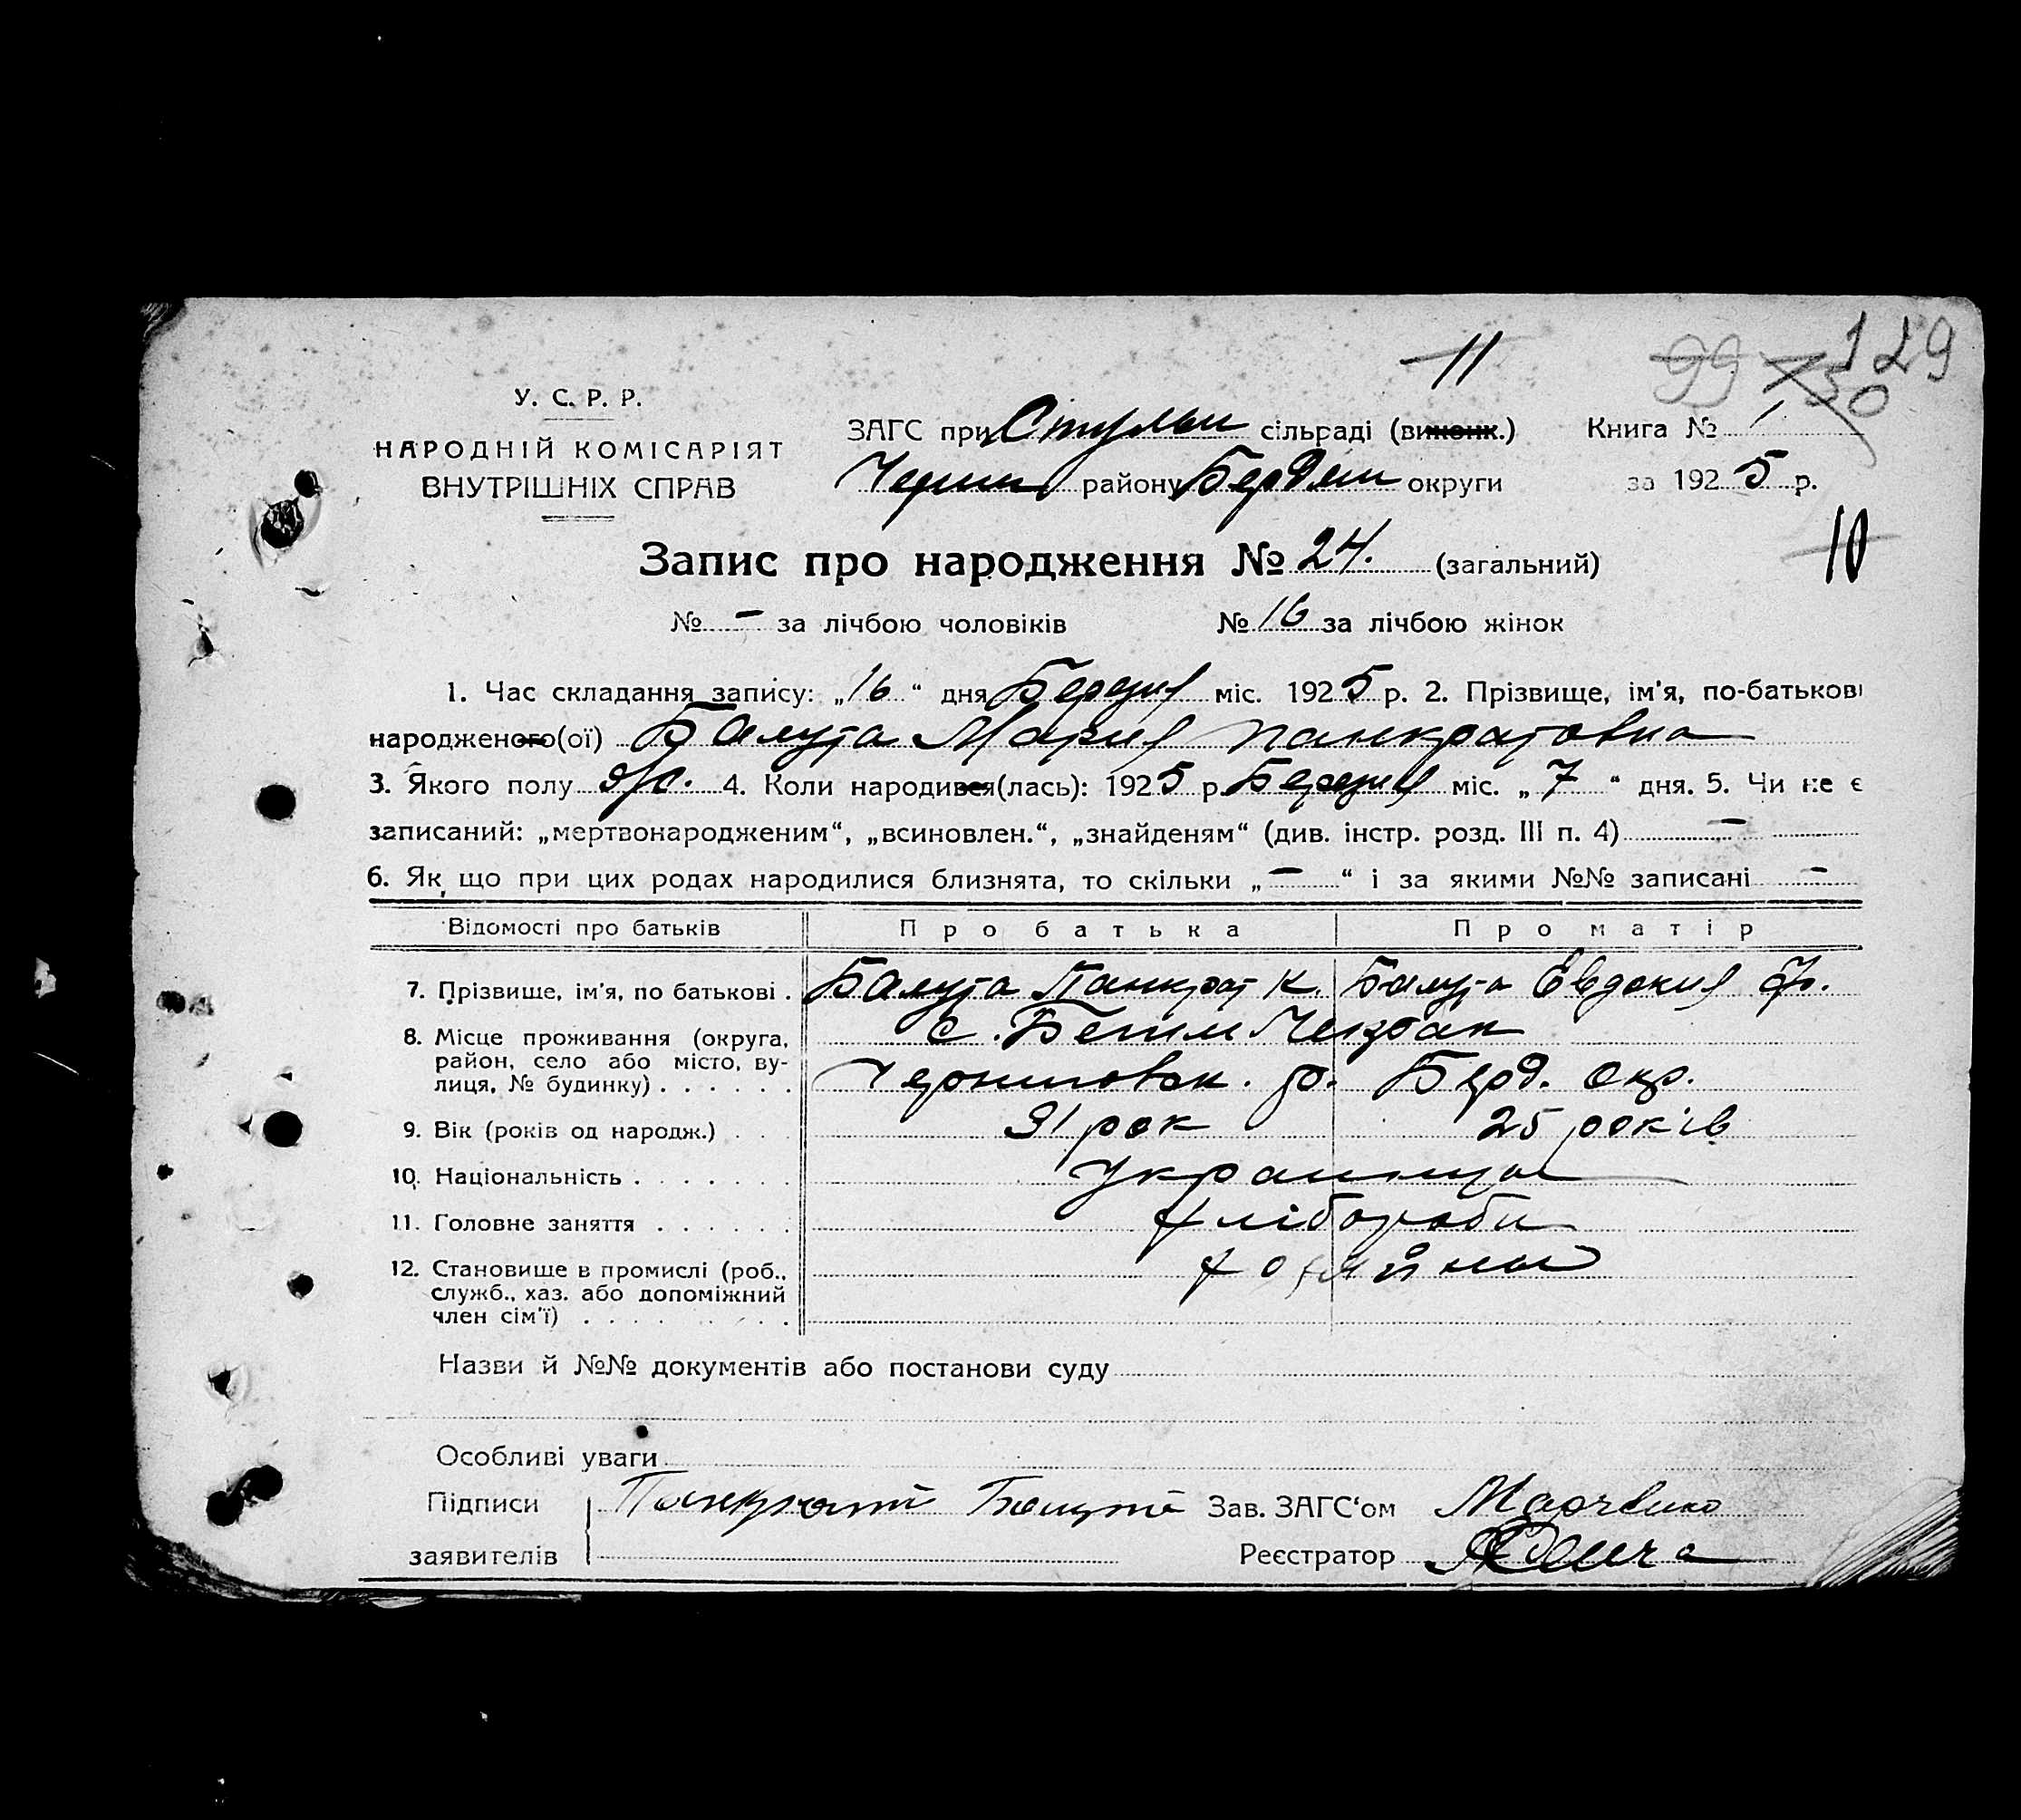 11
99 129
30
У. С. Р. Р.
НАРОДНІЙ КОМІСАРІЯТ
ВНУТРІШНІХ СПРАВ
ЗАГС при сільраді (виконк.) Книга № 1
Черниг району Бердян округи за 1925 р.
10
Запис про народження № 24. (загальний)
№ – за лічбою чоловіків № 16 за лічбою жінок
1. Час складання запису: „16“ дня Березня міс. 1925 р. 2. Прізвище, ім'я, по-батькові
народженого(ої) Балута Мария Панкратовна
3. Якого полу ж. 4. Коли народився(лась): 1925 р. Березня міс. „7“ дня. 5. Чи не є
записаний: „мертвонародженим“, „всиновлен.“, „знайденям“ (див. інстр. розд. III п. 4) –
6. Як що при цих родах народилися близнята, то скільки „–“ і за якими №№ записані –
Відомості про батьків Про батька Про матір
7. Прізвище, ім'я, по батькові . Балута Панкрат К. Балута Евдокия Ф.
8. Місце проживання (округа, район, село або місто, вулиця, № будинку) . . . . . . с. Бегим Чокрак
Черниговск. р. Берд. окр.
9. Вік (років од народж.) . . . 31 рок 25 років
10. Національність . . . . . . . Украинцы
11. Головне заняття . . . . . . Хлібороби
12. Становище в промислі (роб., служб., хаз. або допоміжний член сім'ї) . . . . . . . . . хозяйны
Назви й №№ документів або постанови суду
Особливі уваги
Підписи Панкрат Балута Зав. ЗАГС'ом Марченко
заявителів Реєстратор